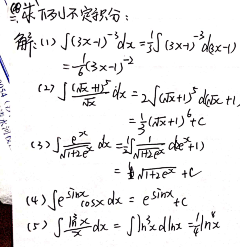 三.求下列不定积分:
解:(1) ∫(3x-1)⁻³dx = 1/3 ∫(3x-1)⁻³d(3x-1)
= -1/6 (3x-1)⁻²
(2) ∫ (√x+1)⁵/√x dx = 2∫(√x+1)⁵ d(√x+1)
= 1/3 (√x+1)⁶ + C
(3) ∫ eˣ/√(1+2eˣ) dx = 1/2 ∫ 1/√(1+2eˣ) d(2eˣ+1)
= √(1+2eˣ) + C
(4) ∫ e^sinx cosx dx = e^sinx + C
(5) ∫ ln³x/x dx = ∫ ln³x dlnx = 1/4 ln⁴x